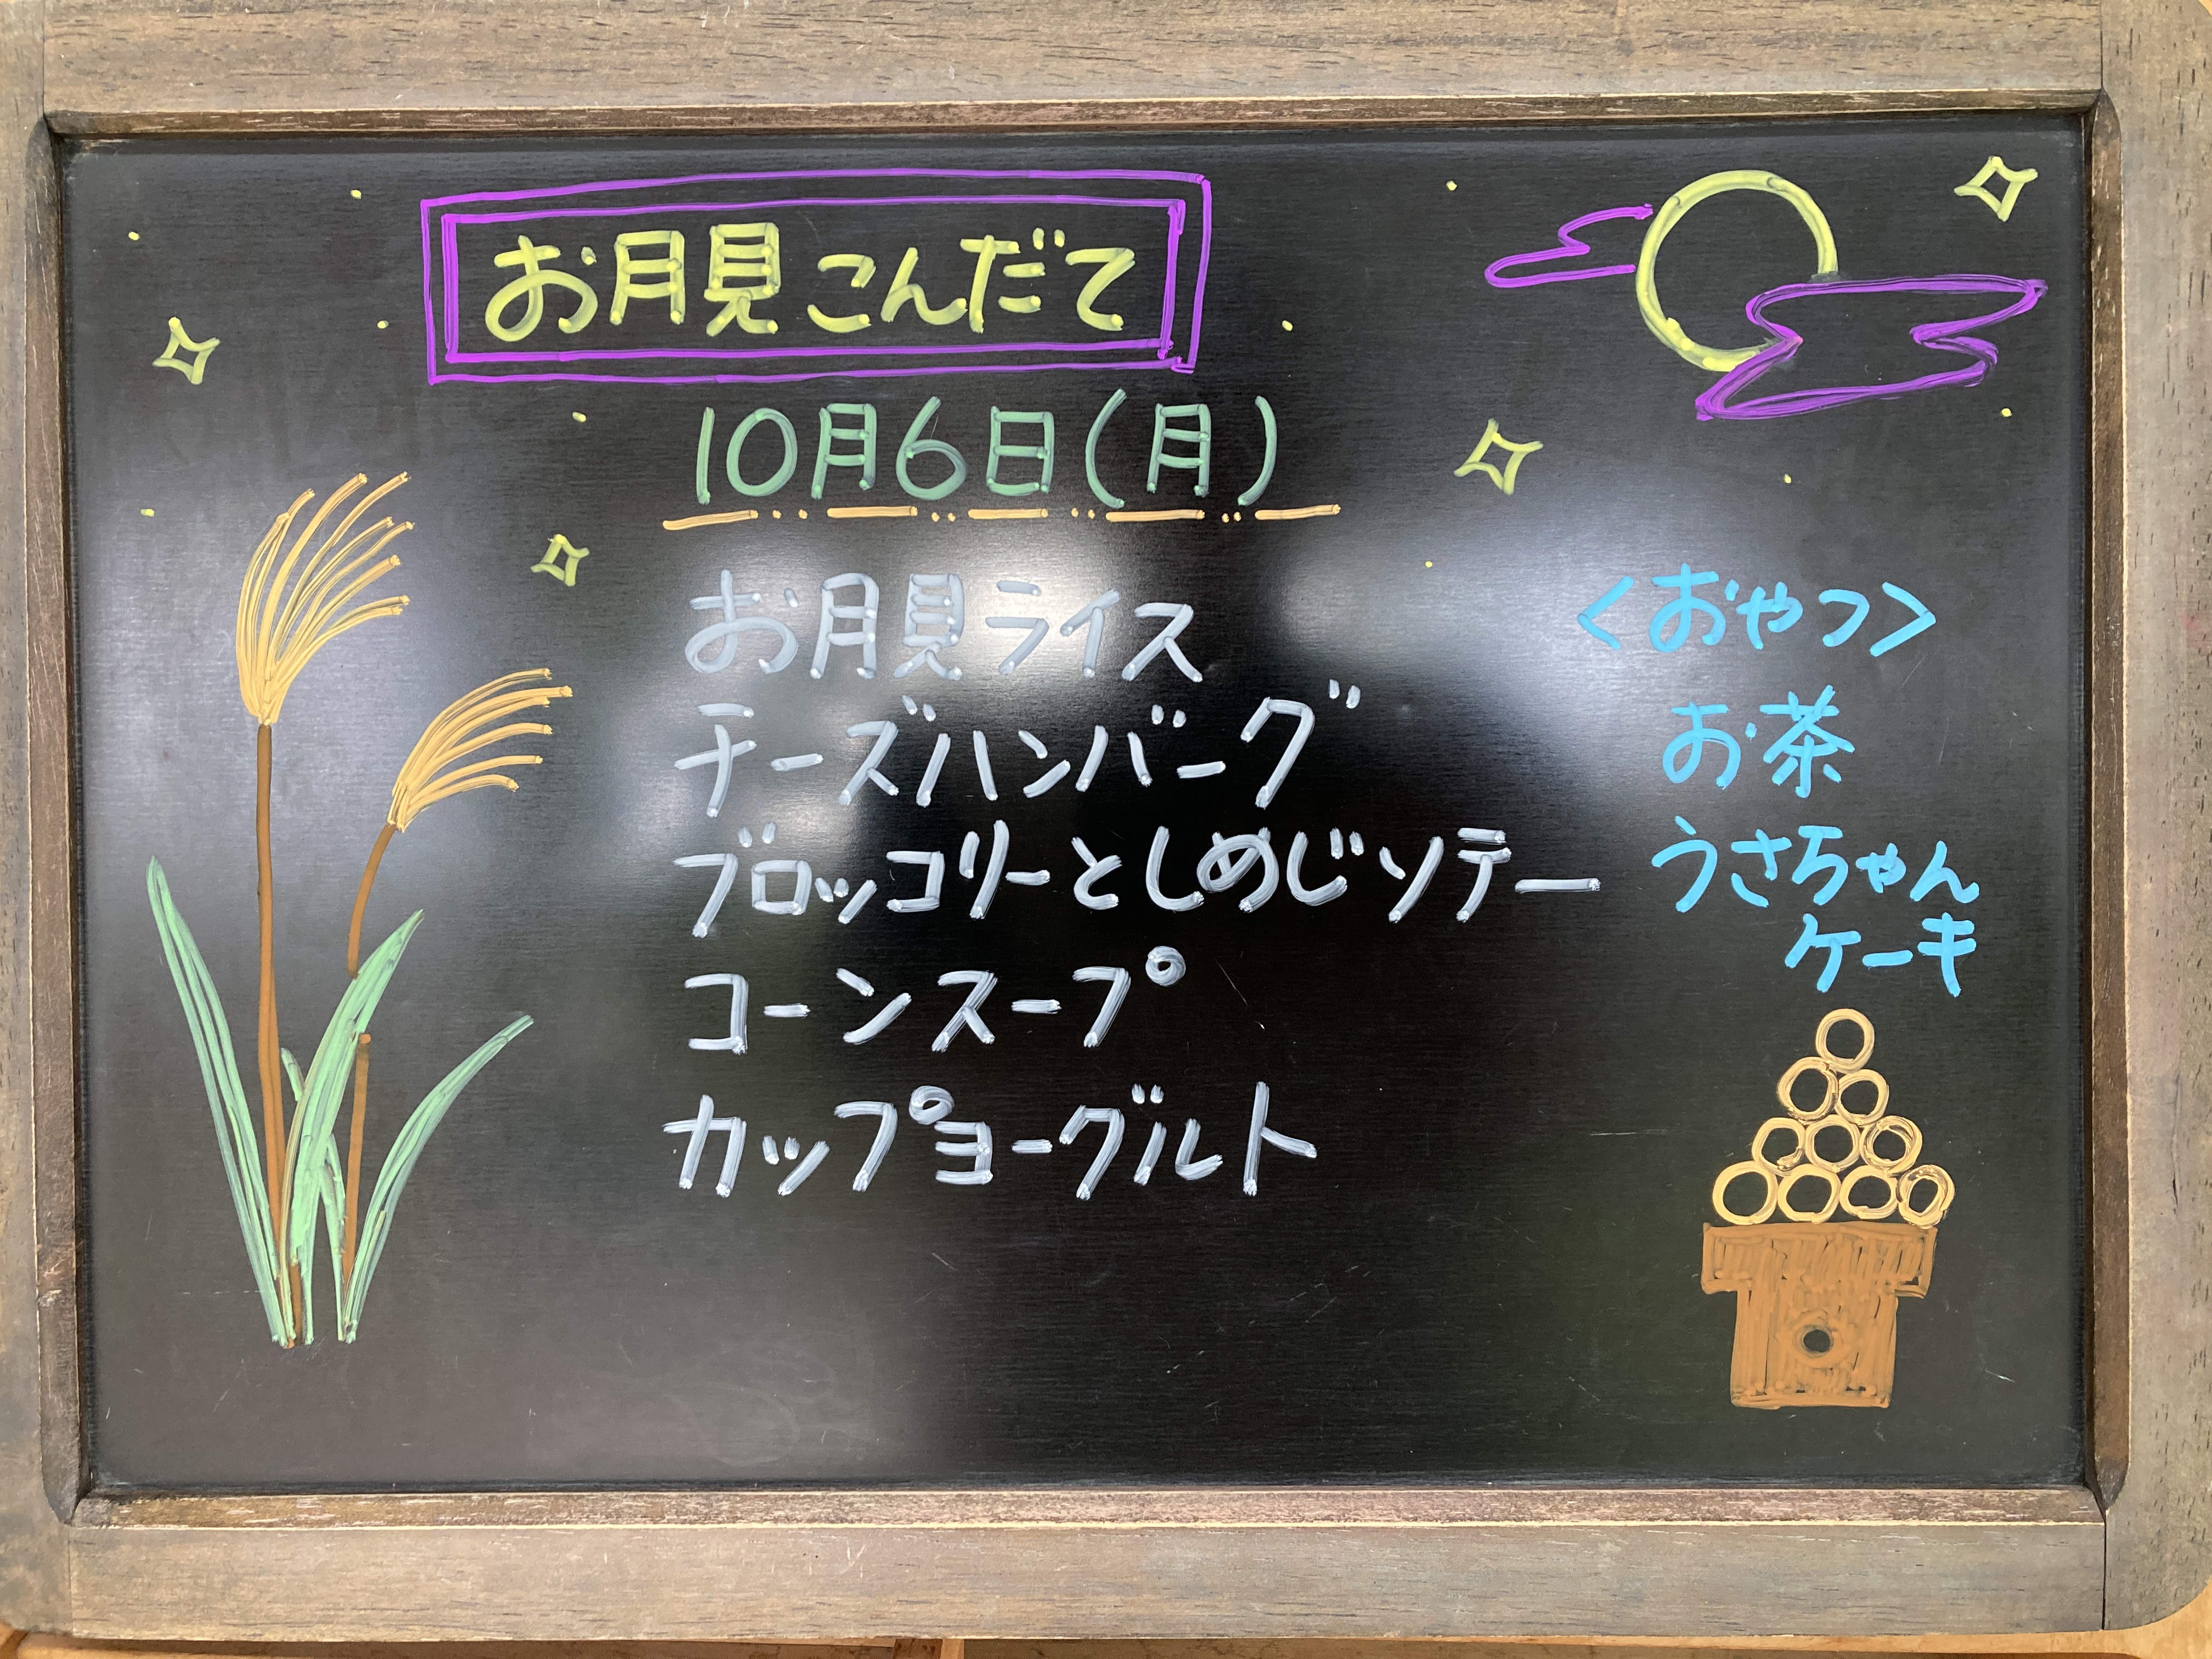 お月見こんだて
10月6日(月)
お月見ライス
チーズハンバーグ
ブロッコリーとしめじソテー
コーンスープ
カップヨーグルト
<おやつ>
お茶
うさちゃん
ケーキ